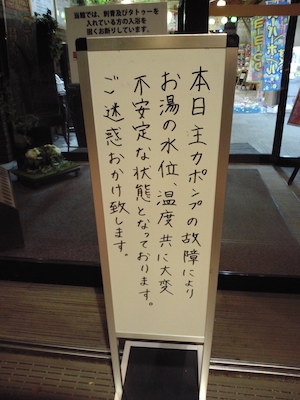 当館では、刺青及びタトゥーを
入れている方の入浴を
固くお断りしています。
本日主力ポンプの故障により
お湯の水位、温度共に大変
不安定な状態となっております。
ご迷惑おかけ致します。